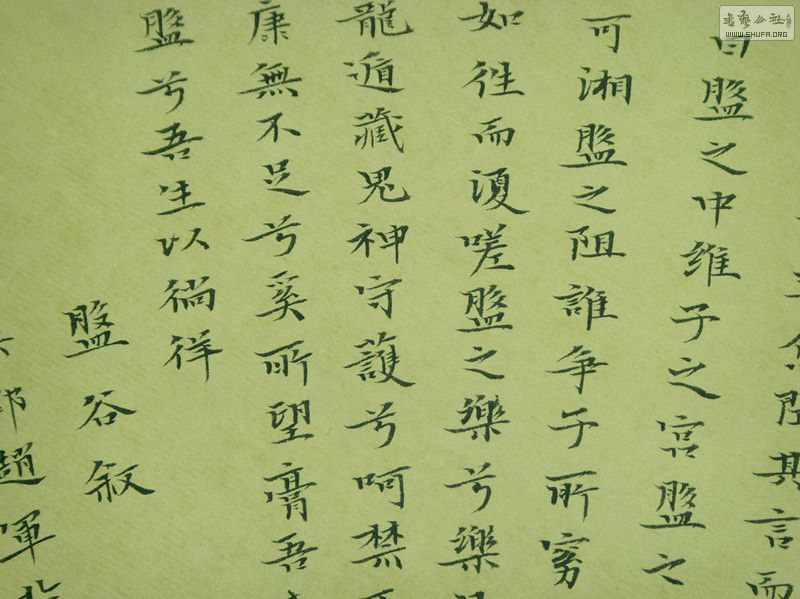 其言而
曰盤之中维子之宫盤之
可湘盤之阻誰争子所窈
如往而復嗟盤之樂兮樂
龍遁藏鬼神守護兮呵禁
康無不足兮奚所望膏吾
盤兮吾生以徜徉
盤谷叙
郎趙
書藝公社
WWW.SHUFA.ORG